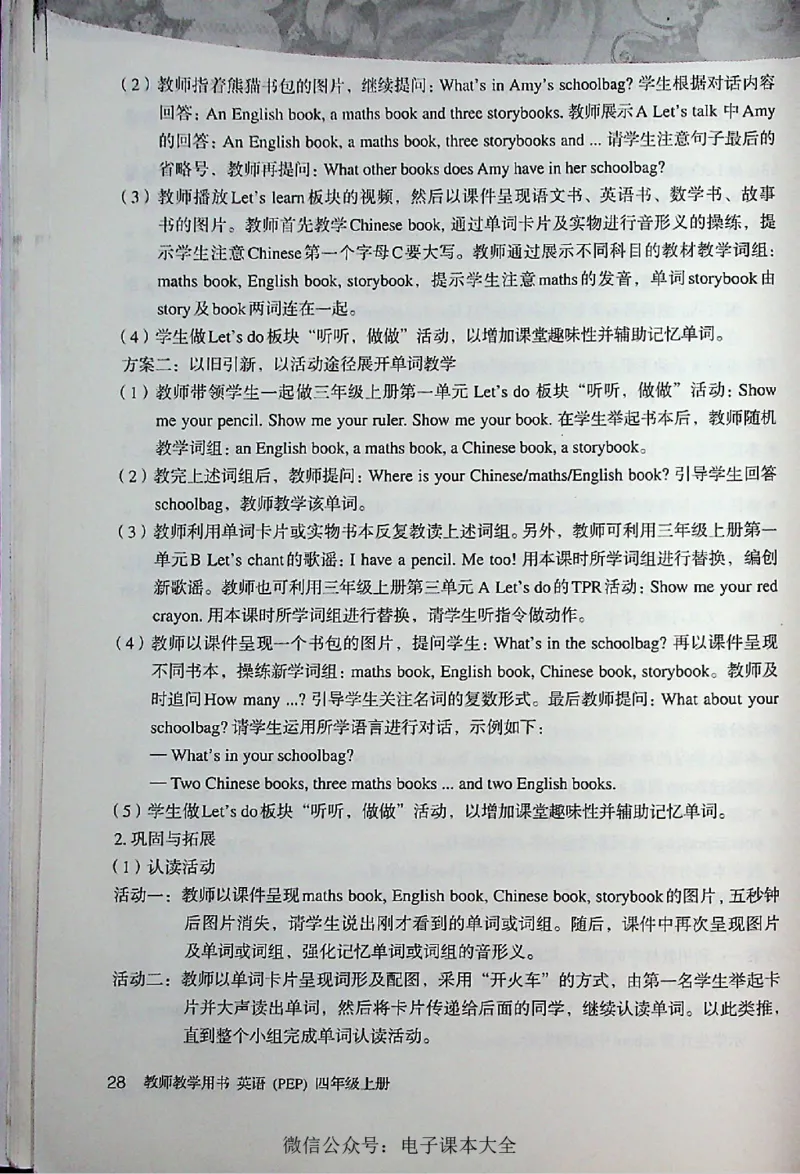 （2）教师指着熊猫书包的图片，继续提问：What's in Amy's schoolbag? 学生根据对话内容
回答：An English book, a maths book and three storybooks. 教师展示A Let's talk 中Amy
的回答：An English book, a maths book, three storybooks and ... 请学生注意句子最后的
省略号，教师再提问：What other books does Amy have in her schoolbag?
（3）教师播放Let's learn板块的视频，然后以课件呈现语文书、英语书、数学书、故事
书的图片。教师首先教学Chinese book, 通过单词卡片及实物进行音形义的操练，提
示学生注意Chinese第一个字母C要大写。教师通过展示不同科目的教材教学词组：
maths book, English book, storybook，提示学生注意maths的发音，单词storybook由
story及book两词连在一起。
（4）学生做Let's do板块“听听，做做”活动，以增加课堂趣味性并辅助记忆单词。
方案二：以旧引新，以活动途径展开单词教学
（1）教师带领学生一起做三年级上册第一单元 Let's do 板块“听听，做做”活动：Show
me your pencil. Show me your ruler. Show me your book. 在学生举起书本后，教师随机
教学词组：an English book, a maths book, a Chinese book, a storybook。
（2）教完上述词组后，教师提问：Where is your Chinese/maths/English book? 引导学生回答
schoolbag，教师教学该单词。
（3）教师利用单词卡片或实物书本反复教读上述词组。另外，教师可利用三年级上册第一
单元B Let's chant的歌谣：I have a pencil. Me too! 用本课时所学词组进行替换，编创
新歌谣。教师也可利用三年级上册第三单元 A Let's do的TPR活动：Show me your red
crayon. 用本课时所学词组进行替换，请学生听指令做动作。
（4）教师以课件呈现一个书包的图片，提问学生：What's in the schoolbag? 再以课件呈现
不同书本，操练新学词组：maths book, English book, Chinese book, storybook。教师及
时追问How many ...? 引导学生关注名词的复数形式。最后教师提问：What about your
schoolbag? 请学生运用所学语言进行对话，示例如下：
— What's in your schoolbag?
— Two Chinese books, three maths books ... and two English books.
（5）学生做Let's do板块“听听，做做”活动，以增加课堂趣味性并辅助记忆单词。
2. 巩固与拓展
（1）认读活动
活动一：教师以课件呈现maths book, English book, Chinese book, storybook的图片，五秒钟
后图片消失，请学生说出刚才看到的单词或词组。随后，课件中再次呈现图片
及单词或词组，强化记忆单词或词组的音形义。
活动二：教师以单词卡片呈现词形及配图，采用“开火车”的方式，由第一名学生举起卡
片并大声读出单词，然后将卡片传递给后面的同学，继续认读单词。以此类推，
直到整个小组完成单词认读活动。
28 教师教学用书 英语 (PEP) 四年级上册
微信公众号：电子课本大全